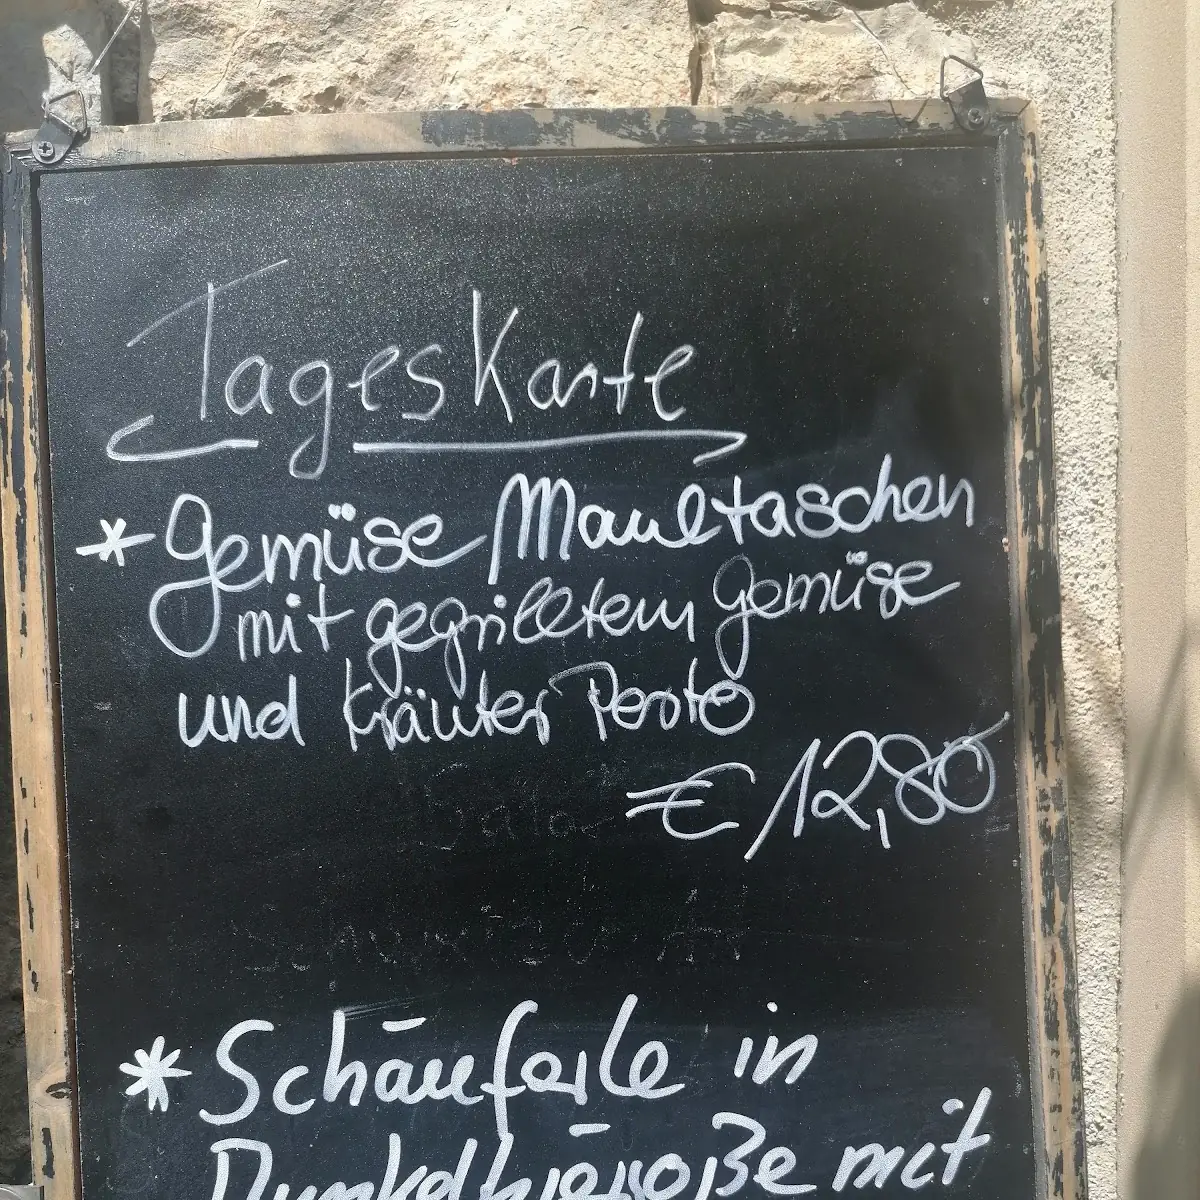 Tageskarte
* Gemüse Maultaschen
mit gegrilltem Gemüse
und Kräuter Pesto
€ 12,80
* Schäuferle in
Dunkelbiersoße mit